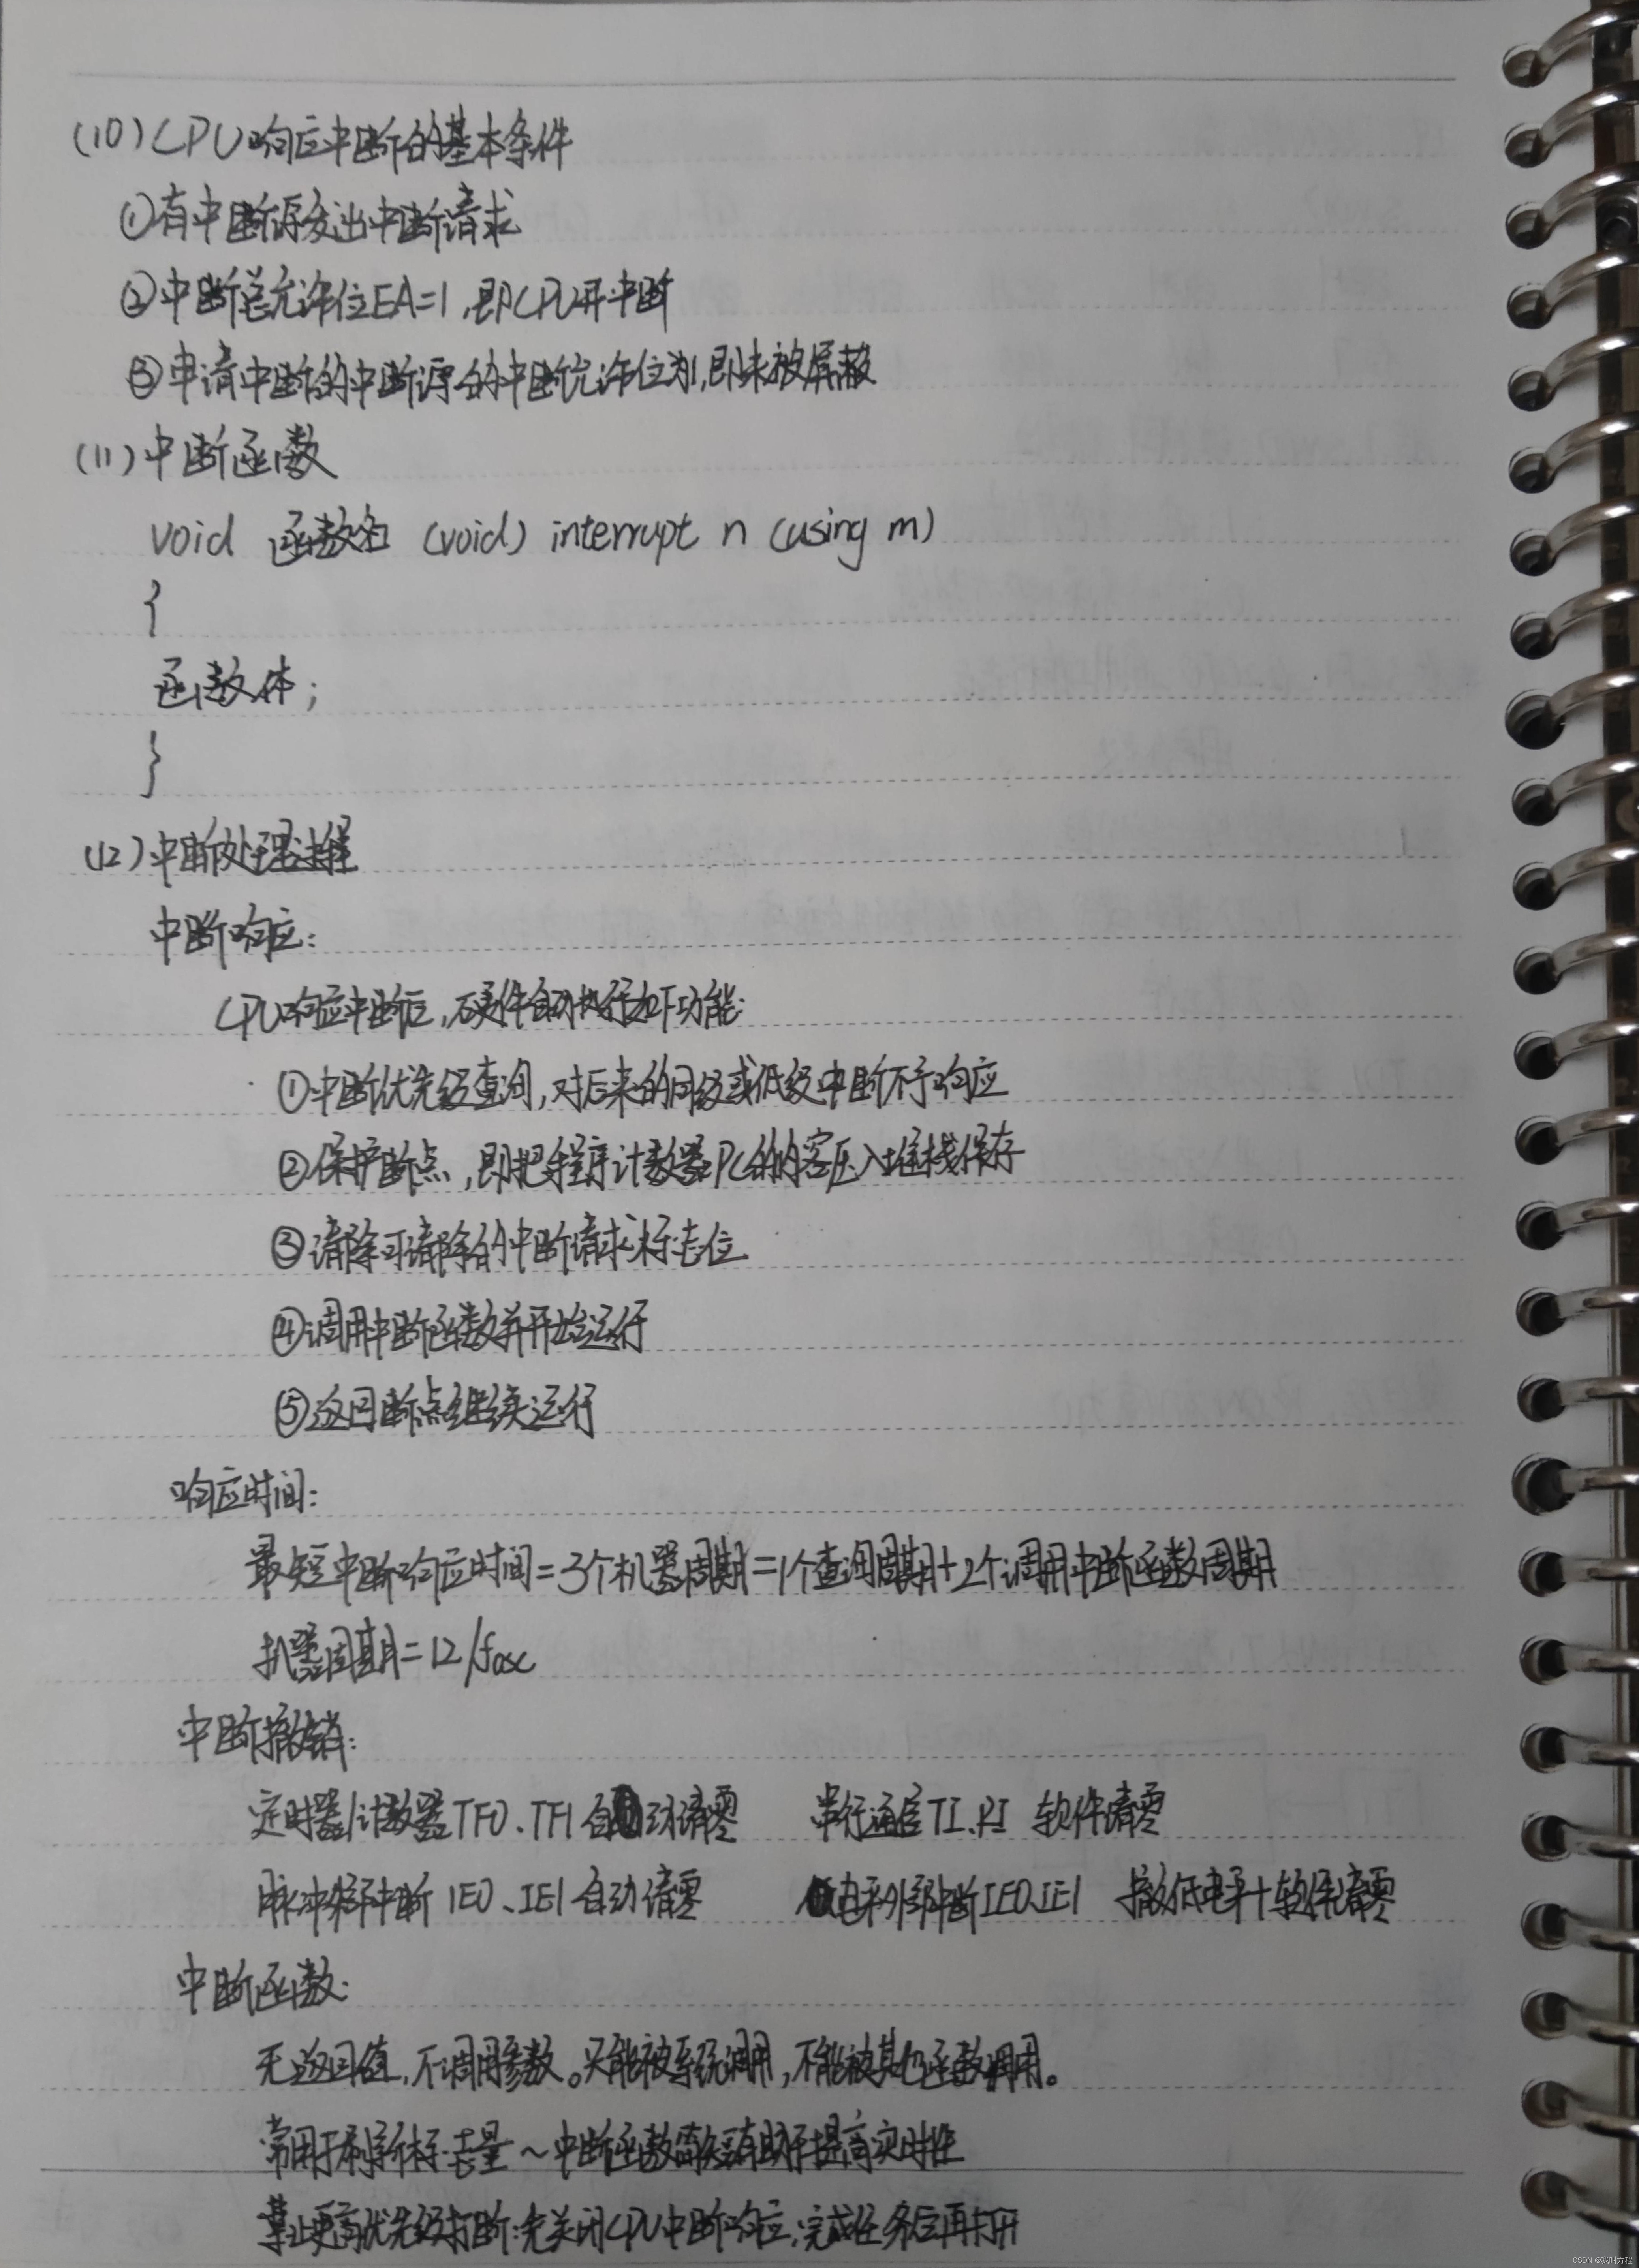 (10) CPU响应中断的基本条件
①有中断源发出中断请求
②中断总允许位EA=1,即CPU开中断
③申请中断的中断源的中断允许位为1,即未被屏蔽
(11)中断函数
void 函数名 (void) interrupt n (using m)
{
函数体;
}
(12)中断处理过程
中断响应:
CPU响应中断后,硬件自动执行如下功能:
①中断优先级查询,对后来的同级或低级中断不予响应
②保护断点,即把程序计数器PC的内容压入堆栈保存
③清除可清除的中断请求标志位
④调用中断函数并开始运行
⑤返回断点继续运行
响应时间:
最短中断响应时间=3个机器周期=1个查询周期+2个调用中断函数周期
机器周期=12/fosc
中断撤销:
定时器/计数器TF0、TF1 自动清零 串行通信TI、RI 软件清零
脉冲外部中断 IE0、IE1 自动清零 低电平外部中断IE0、IE1 撤低电平+软件清零
中断函数:
无返回值,不调用参数。只能被系统调用,不能被其他函数调用。
常用于刷新标志量～中断函数简短有助于提高实时性
禁止更高优先级打断:先关闭CPU中断响应,完成任务后再打开
CSDN @我叫方程